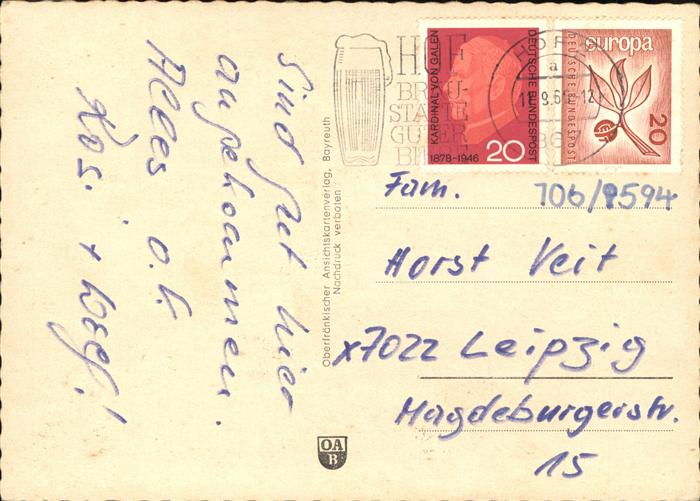 Sind gut hier
angekommen.
Alles o.k.
Oberfränkischer Ansichtskartenverlag, Bayreuth
Nachdruck verboten
HOF
BRAU-
STADT
GUTER
BIERE
KARDINAL VON GALEN
1878-1946
20
DEUTSCHE BUNDESPOST
HOF
a
europa
DEUTSCHE BUNDESPOST
20
Fam.
706/9594
Horst Veit
x7022 Leipzig
Magdeburgerstr.
15
OA
B